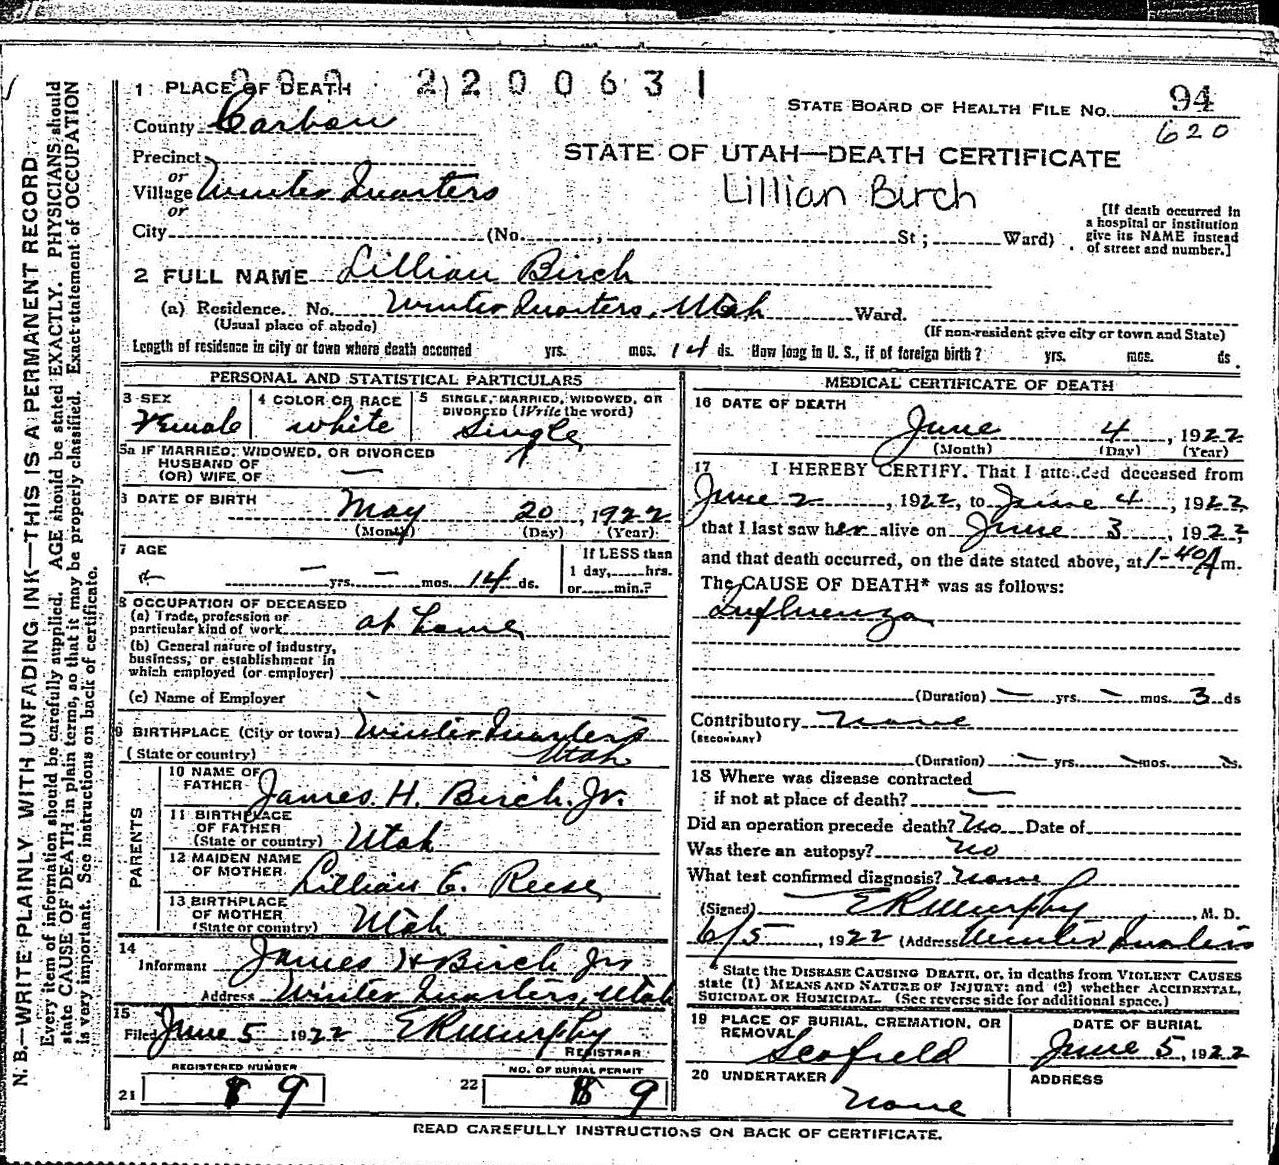 2200631
1 PLACE OF DEATH
STATE BOARD OF HEALTH FILE No. 94
620
County Carbon
STATE OF UTAH—DEATH CERTIFICATE
Precinct
or
Village Winter Quarters
Lillian Birch
or
City (No. , St ; Ward)
[If death occurred in
a hospital or institution
give its NAME instead
of street and number.]
2 FULL NAME Lillian Birch
(a) Residence. No. Winter Quarters, Utah Ward.
(Usual place of abode) (If non-resident give city or town and State)
Length of residence in city or town where death occurred yrs. mos. 14 ds. How long in U. S., if of foreign birth? yrs. mos. ds.
PERSONAL AND STATISTICAL PARTICULARS
3 SEX Female
4 COLOR OR RACE white
5 SINGLE, MARRIED, WIDOWED, OR
DIVORCED (Write the word)
Single
5a IF MARRIED, WIDOWED, OR DIVORCED
HUSBAND OF
(OR) WIFE OF —
6 DATE OF BIRTH May 20, 1922
(Month) (Day) (Year)
7 AGE
— yrs. — mos. 14 ds.
If LESS than
1 day, hrs.
or min.?
8 OCCUPATION OF DECEASED
(a) Trade, profession or
particular kind of work at home
(b) General nature of industry,
business, or establishment in
which employed (or employer)
(c) Name of Employer
9 BIRTHPLACE (City or town) Winter Quarters
(State or country) Utah
PARENTS
10 NAME OF
FATHER James H. Birch Jr.
11 BIRTHPLACE
OF FATHER
(State or country) Utah
12 MAIDEN NAME
OF MOTHER Lillian E. Reese
13 BIRTHPLACE
OF MOTHER
(State or country) Utah
14
Informant James H Birch Jr
Address Winter Quarters, Utah
15
Filed June 5 1922 E R Murphy
REGISTRAR
REGISTERED NUMBER
21 9
NO. OF BURIAL PERMIT
22 9
MEDICAL CERTIFICATE OF DEATH
16 DATE OF DEATH
June 4, 1922
(Month) (Day) (Year)
17 I HEREBY CERTIFY. That I attended deceased from
June 2, 1922, to June 4, 1922,
that I last saw her alive on June 3, 1922,
and that death occurred, on the date stated above, at 1-40 A m.
The CAUSE OF DEATH* was as follows:
Influenza
(Duration) — yrs. — mos. 3 ds
Contributory None
(SECONDARY)
(Duration) — yrs. — mos. ds.
18 Where was disease contracted
if not at place of death? —
Did an operation precede death? No Date of
Was there an autopsy? No
What test confirmed diagnosis? None
(Signed) E R Murphy, M. D.
6/5, 1922 (Address Winter Quarters
* State the DISEASE CAUSING DEATH, or, in deaths from VIOLENT CAUSES
state (1) MEANS AND NATURE OF INJURY; and (2) whether ACCIDENTAL,
SUICIDAL OR HOMICIDAL. (See reverse side for additional space.)
19 PLACE OF BURIAL, CREMATION, OR
REMOVAL
Scofield
DATE OF BURIAL
June 5, 1922
20 UNDERTAKER
None
ADDRESS
READ CAREFULLY INSTRUCTIONS ON BACK OF CERTIFICATE.
N. B.—WRITE PLAINLY WITH UNFADING INK—THIS IS A PERMANENT RECORD
Every item of information should be carefully supplied. AGE should be stated EXACTLY. PHYSICIANS should
state CAUSE OF DEATH in plain terms, so that it may be properly classified. Exact statement of OCCUPATION
is very important. See instructions on back of certificate.